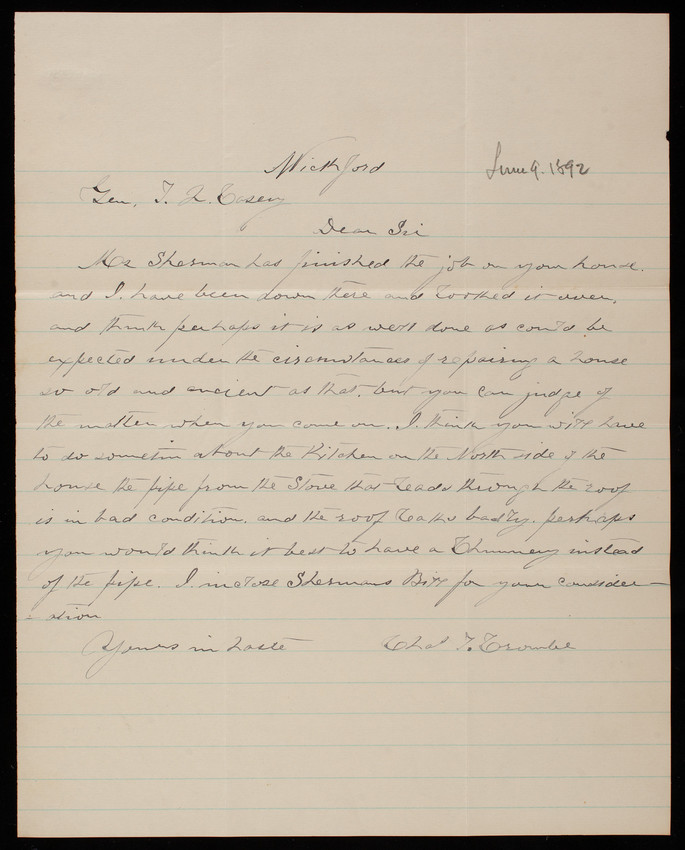 Wickford June 9. 1892
Gen. T. L. Casey
Dear Sir
Mr Sherman has finished the job on your house.
and I. have been down there and looked it over,
and think perhaps it is as well done as could be
expected under the circumstances of repairing a house
so old and ancient as that. but you can judge of
the matter when you come on. I. think you will have
to do sometin about the Kitchen on the North side of the
house the pipe from the Stove that leads through the roof
is in bad condition. and the roof leaks badly. perhaps
you would think it best to have a Chimney instead
of the pipe. I. inclose Shermans Bill for your consider-
-ation
Yours in haste Chas T. Crombe